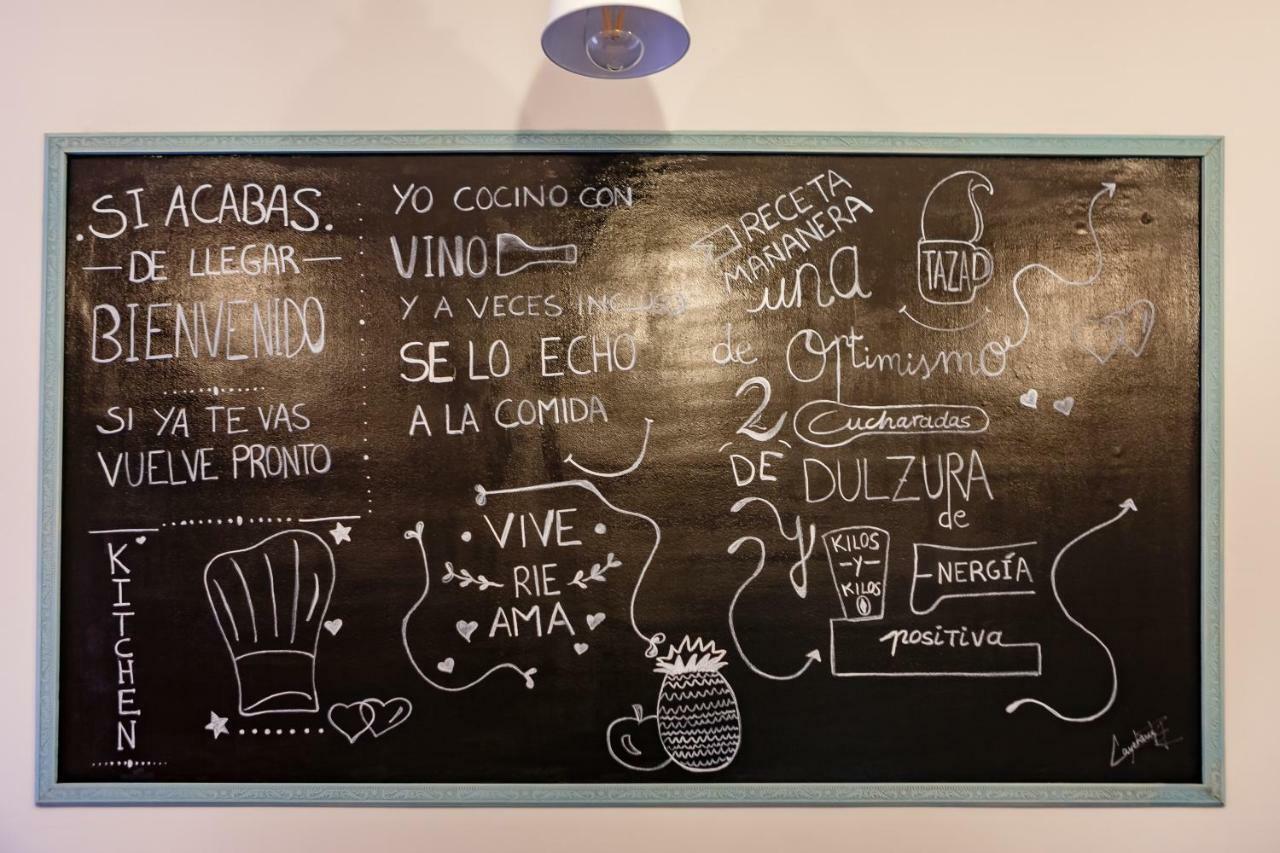 SI ACABAS.
DE LLEGAR
BIENVENIDO
SI YA TE VAS
VUELVE PRONTO
KITCHEN
YO COCINO CON
VINO
Y A VECES INCLUSO
SE LO ECHO
A LA COMIDA
VIVE
RIE
AMA
RECETA
MAÑANERA
una
TAZA
de Optimismo
2 Cucharadas
DE DULZURA
de
Y KILOS
-Y-
KILOS
ENERGÍA
positiva